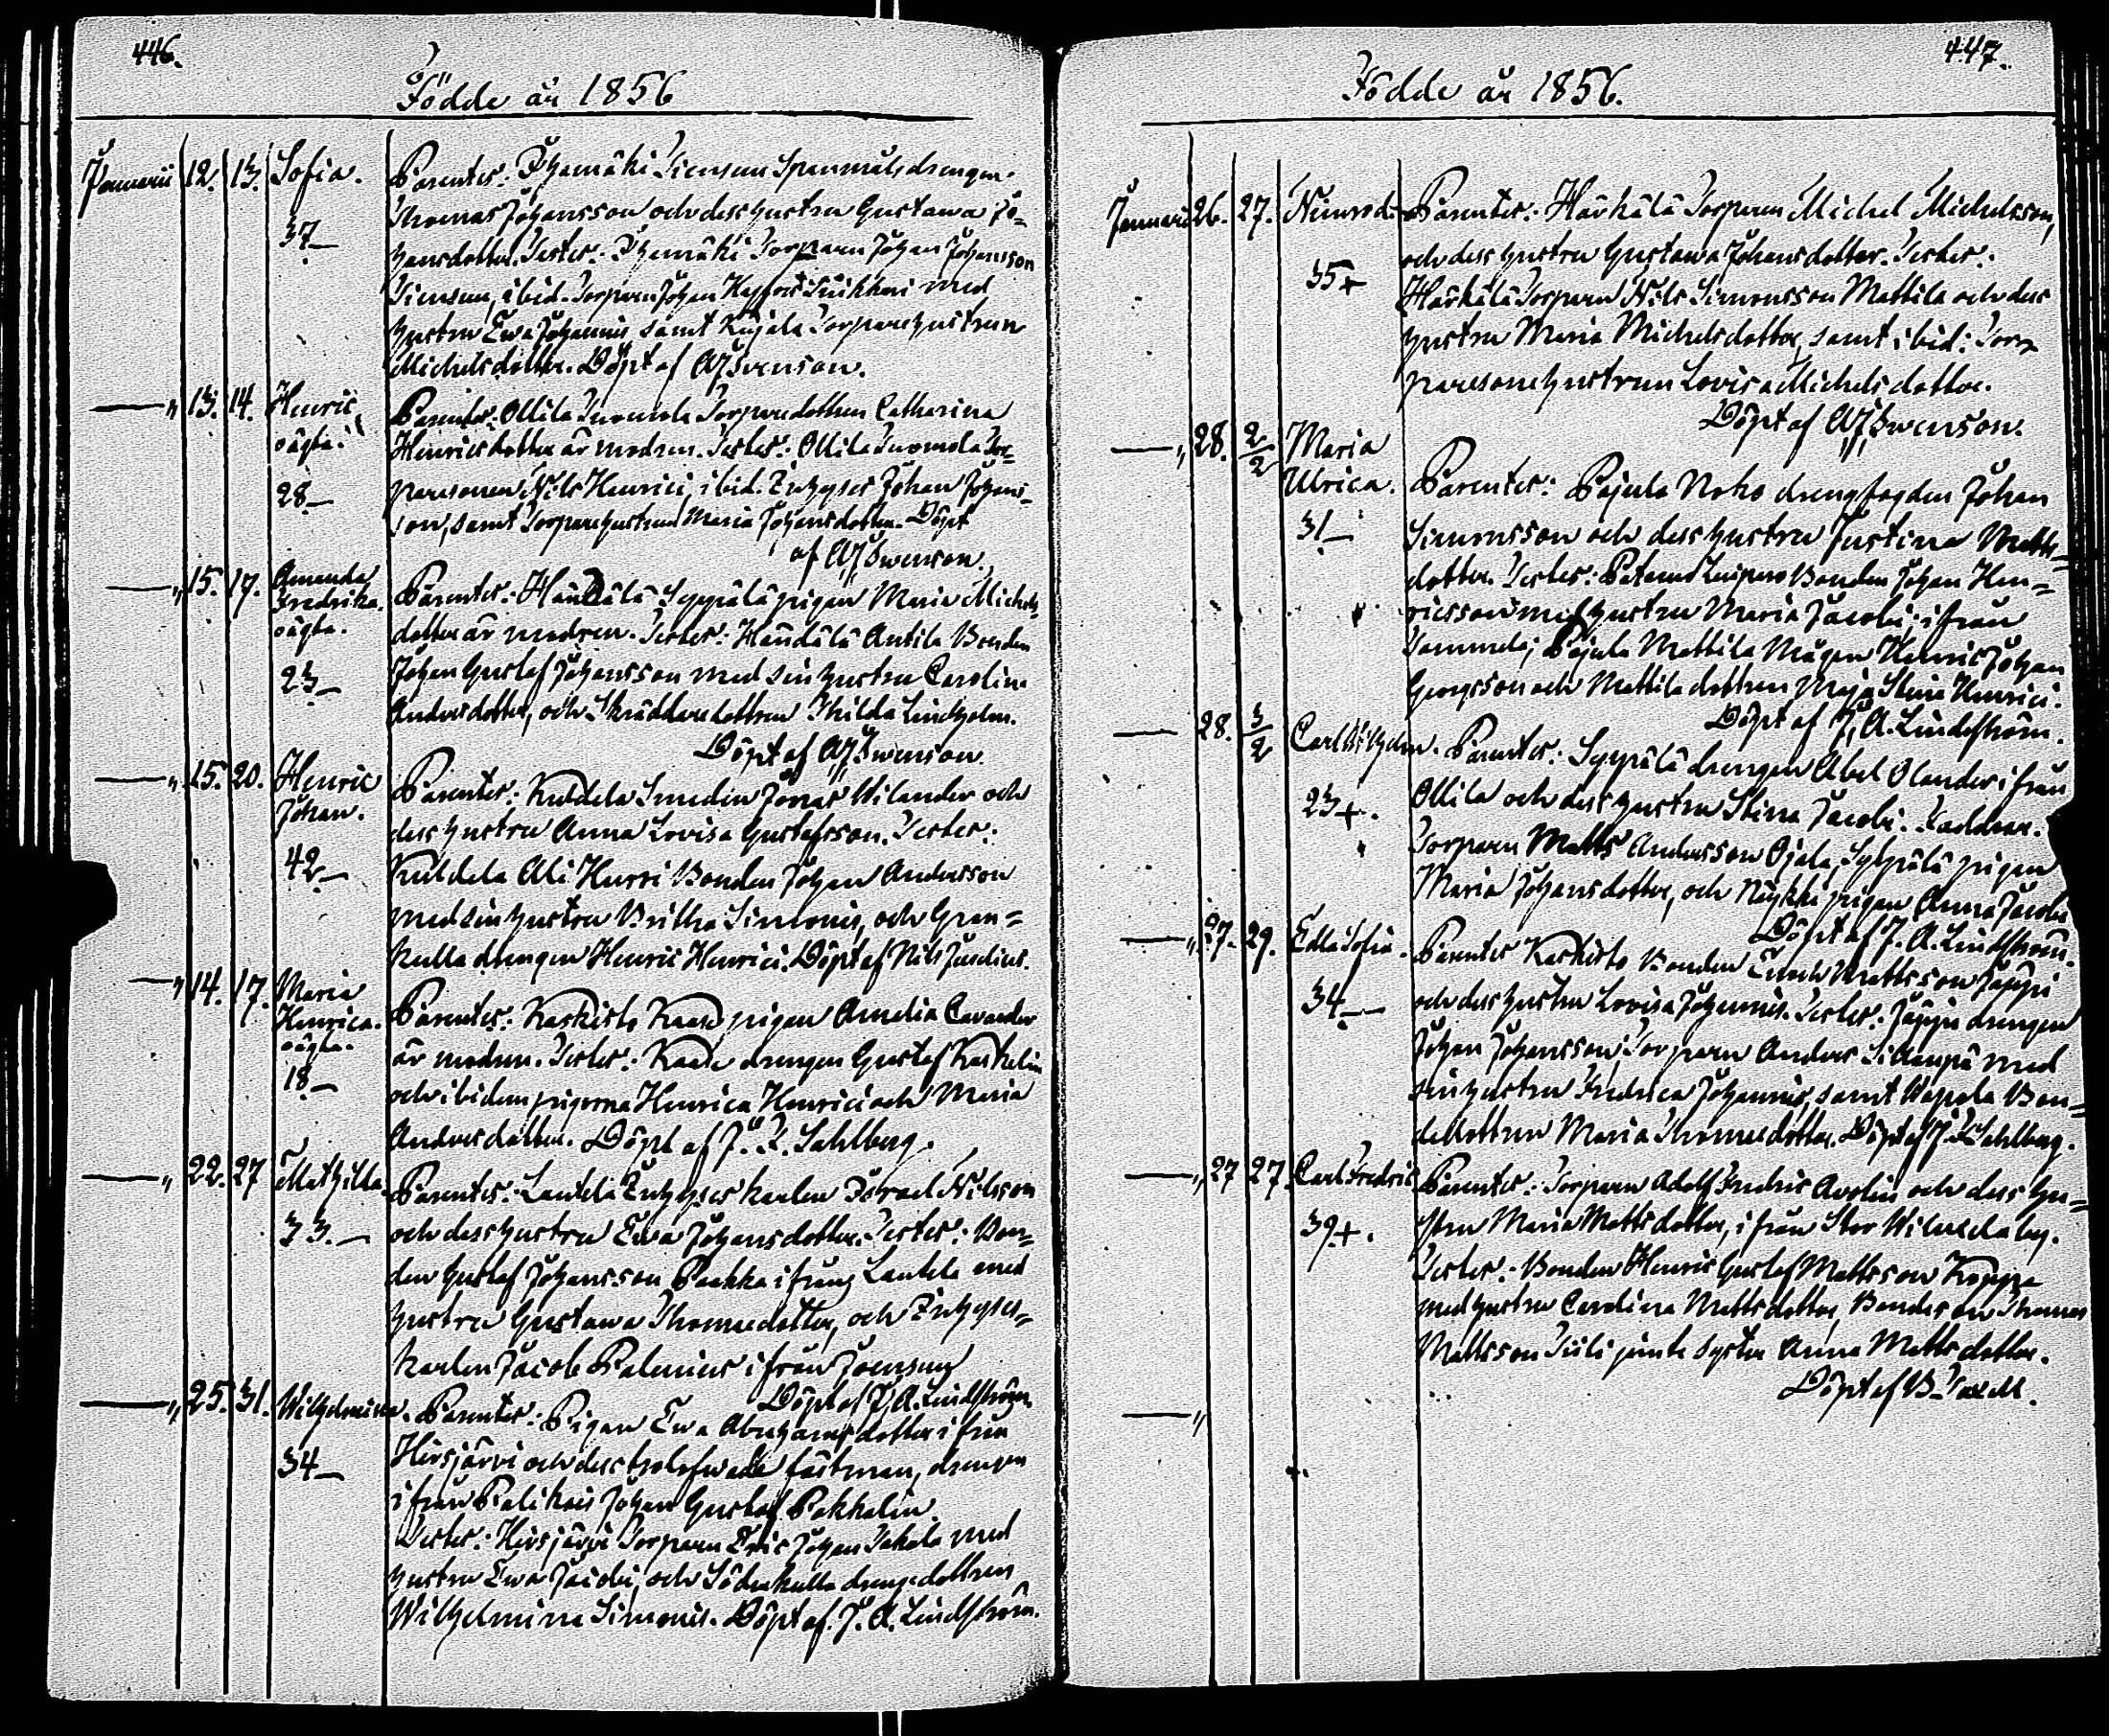 446.
Födde år 1856
Januarii 12. 13. Sofia. Parenter: Spanmålsdrengen
37— Thomas Johansson och dess hustru Gustawa Jo=
hansdotter. Testes: Torparen Johan Johansson
ibid. Torparen Johan med
hustru Ewa Johannis samt Kujala Torparehustrun
Michelsdotter. Döpt af Swenson.
—„ 13. 14. Henric, Parenter: Ollila Torparedottren Catharina
oägta. Henricsdotter är modren. Testes: Ollila Tor=
28— paresonen Nils Henrici, ibid. Inhyses Johan Johans=
son, samt Torparehustrun Maria Johansdotter. Döpt
af Swenson.
—„ 15. 17. Amanda Parenter: Seppälä pigan Maria Michels
Fredrika.
oägta. dotter är modren. Testes: Antila Bonden
23— Johan Gustaf Johansson med sin hustru Carolina
Andersdotter, och Skräddaredottren Lindholm.
Döpt af Swenson.
—„ 15. 20. Henric Parenter: Kuldela Smeden Jonas Wilander och
Johan. dess hustru Anna Lovisa Gustafsson. Testes:
42— Kuldela Ali Hurri Bonden Johan Andersson
med sin hustru Britha Simonis, och Gran=
kulla drengen Henric Henrici. Döpt af Nils
—„ 14. 17. Maria
Henrica. Parenter: Karkisto pigan Amelia Cavander
oägta. är modren. Testes: drengen Gustaf
18— och ibidem pigorna Henrica Henrici och Maria
Andersdotter. Döpt af J. F. Sahlberg.
—„ 22. 27 Mathilda Parenter: Lautela Inhyses karlen Israel Nilsson
33.— och dess hustru Ewa Johansdotter. Testes: Bon=
den Gustaf Johansson Paakka ifrån Lautela med
hustru Gustawa Thomasdotter, och Inhyses=
karlen Jacob Palenius ifrån Joensuu
Döpt af J. A. Lindström.
—„ 25. 31. Wilhelmina. Parenter: Pigan Ewa Abrahamsdotter ifrån
34— Hirsjärvi och dess trolofwade fästman, drengen
ifrån Palikais Johan Gustaf
Testes: Hirsjärvi Torparen Eric Johan med
hustru Ewa Jacobi, och Söderkulla drengedottren
Wilhelmina Simonis. Döpt af. J. A. Lindström.
447.
Födde år 1856.
Januarii 26. 27. Nimrod. Parenter: Härkälä Torparen Michel Michelsson,
och dess hustru Gustawa Johansdotter. Testes:
35+ Härkälä Torparen Nils Simonsson Mattila och dess
hustru Maria Michelsdotter, samt ibid: Tor=
paresonehustrun Lovisa Michelsdotter.
Döpt af Swenson.
—„ 28. 2/2 Maria
Ulrica. Parenter: Pajula Noko drengfogden Johan
31— Simonsson och dess hustru Justina Matts=
dotter. Testes: Bonden Johan Hen=
ricsson med hustru Maria Jacobi, ifrån
Sammela; Pajula Mattila Mågen Henric Johan
Georgsson och Mattila dottren Maja Stina Henrici.
Döpt af J. A. Lindström.
— 28. 3/2 Carl Wilhelm. Parenter: Syypälä drengen Abel Olander ifrån
23+. Ollila och dess hustru Stina Jacobi. Faddrar.
Torparen Matts Andersson Ojala, Syypälä pigan
Maria Johansdotter, och pigan Anna Jacobi
Döpt af J. A. Lindström.
—„ 27. 29. Edla Sofia. Parenter Karkisto Bonden Enoch Mattsson Jaappi
34.— och dess hustru Lovisa Johannis. Testes: Jaappi drengen
Johan Johansson; Torparen Anders Sillanpä med
sin hustru Fredrica Johannis, samt Wapola Bon=
dedottren Maria Thomasdotter. Döpt af J. F. Sahlberg.
—„ 27 27. Carl Fredric Parenter: Torparen Adolf Fredric Avelin och dess hu=
39+. stru Maria Mattsdotter, ifrån Stor by.
Testes: Bonden Henric Gustaf Mattsson
med hustru Carolina Mattsdotter, Bondeson Thomas
Mattsson jemte syster Anna Mattsdotter.
Döpt af B.
—„